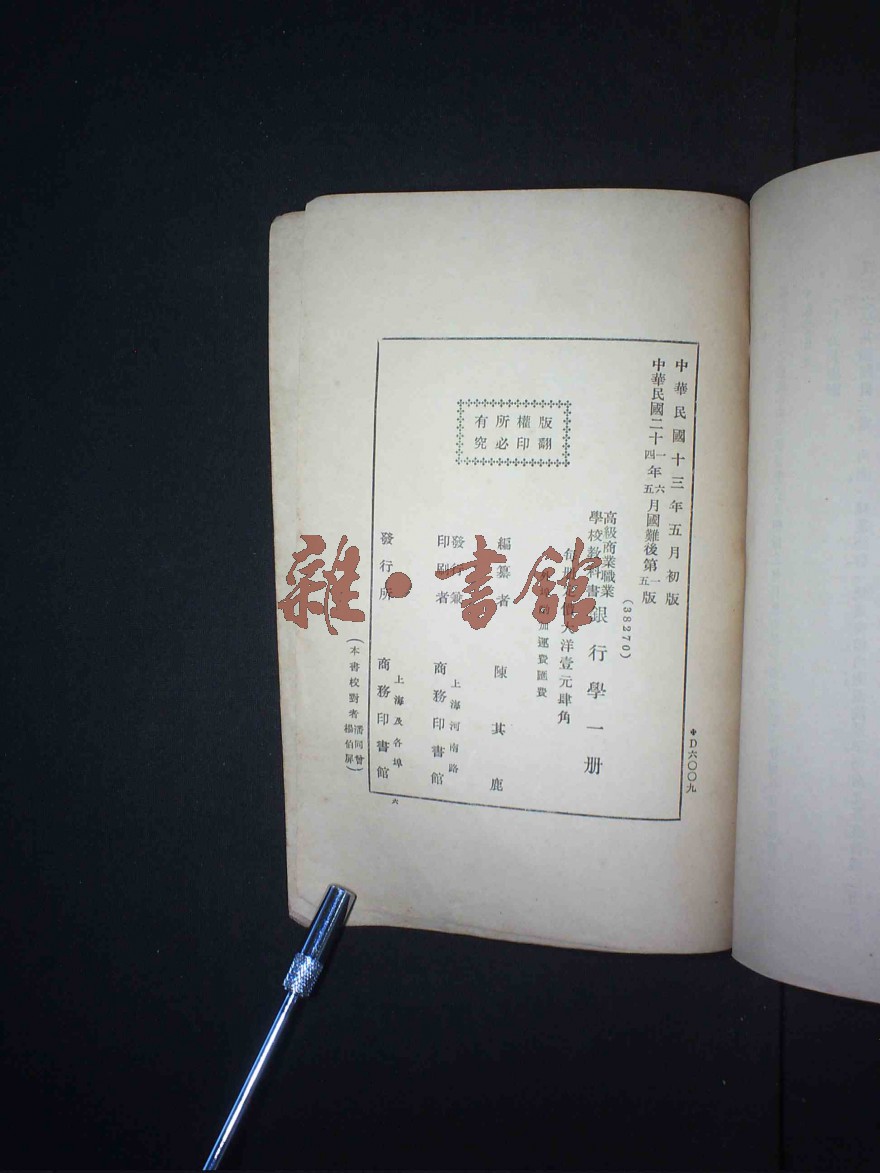 中華民國十三年五月初版
中華民國二十一四年六五月國難後第一五版
(38270)
高級商業職業
學校教科書
銀行學一册
大洋壹元肆角
加運費匯費
版權所有
翻印必究
編纂者 陳其鹿
發行兼
印刷者
上海河南路
商務印書館
發行所
上海及各埠
商務印書館
(本書校對者
潘同曾
楊伯屏)
六
D六〇〇九
雜·書館